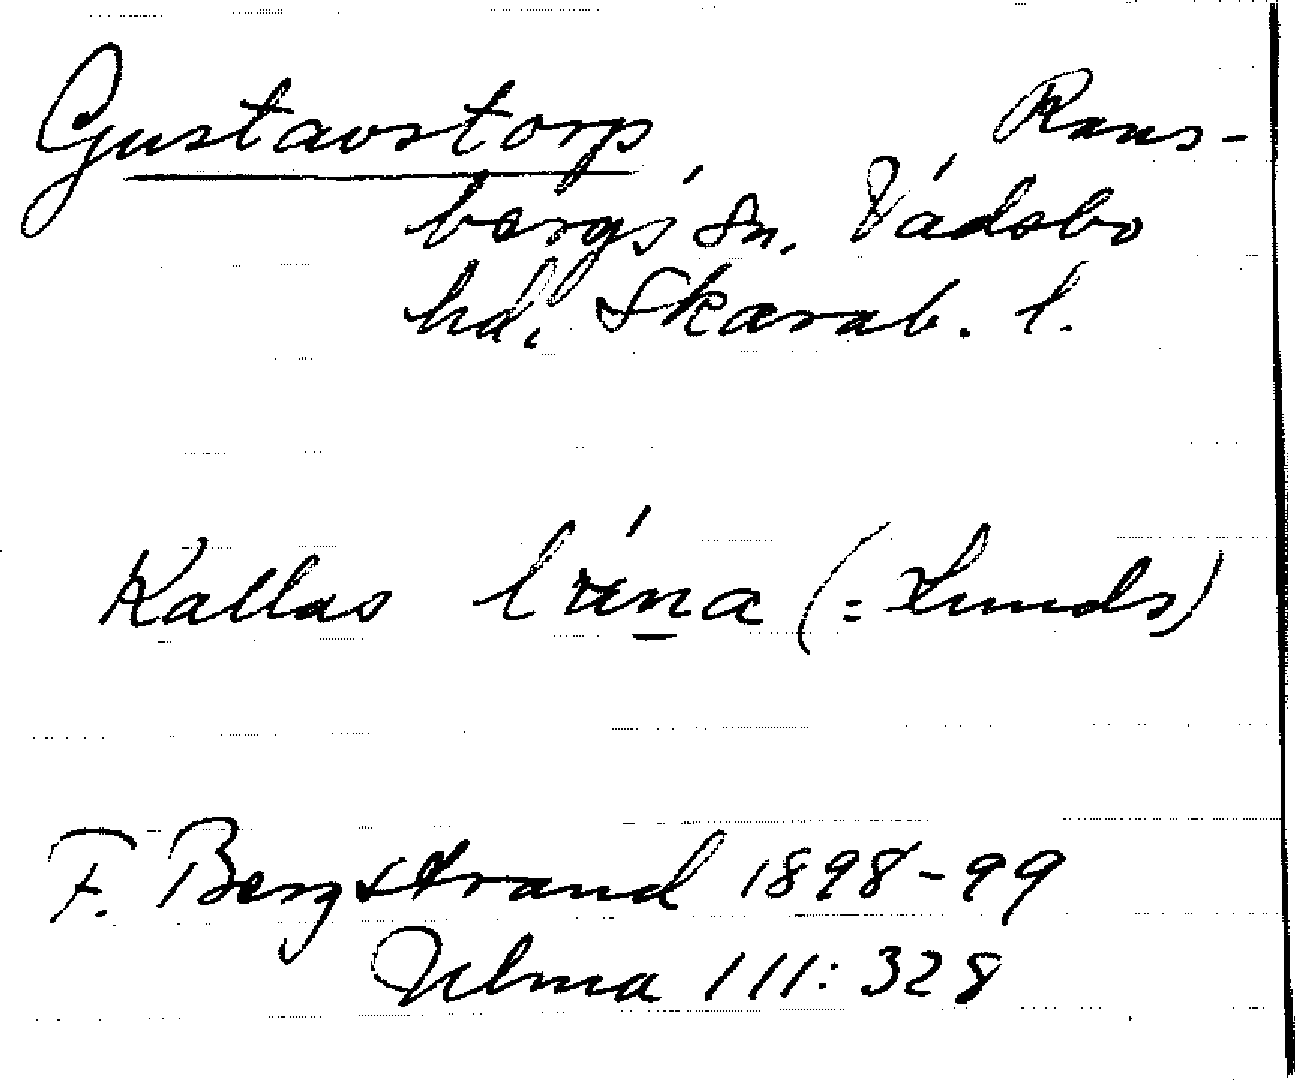 Gustavstorp, Rans-
bergs sn. Vadsbo
hd. Skarab. l.
Kallas (: Lunds)
F. Bergstrand 1898-99
Ulma 111:328